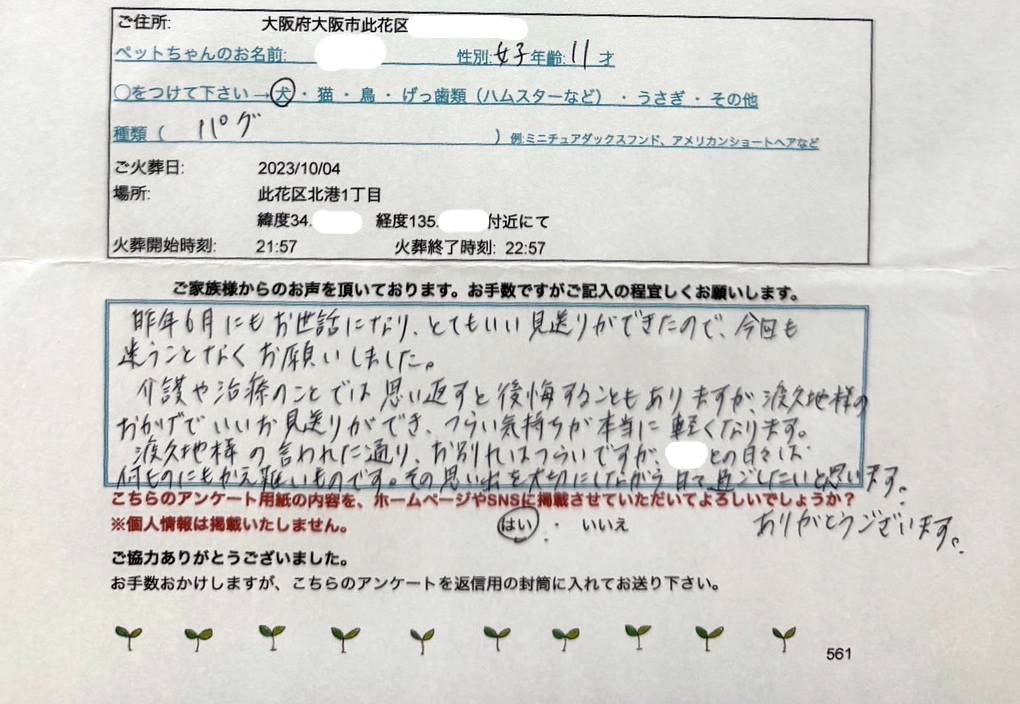 ご住所: 大阪府大阪市此花区
ペットちゃんのお名前: 性別:女子 年齢:11才
○をつけて下さい→犬・猫・鳥・げっ歯類（ハムスターなど）・うさぎ・その他
種類（ パグ ）例:ミニチュアダックスフンド、アメリカンショートヘアなど
ご火葬日: 2023/10/04
場所: 此花区北港1丁目
緯度34. 経度135. 付近にて
火葬開始時刻: 21:57 火葬終了時刻: 22:57
ご家族様からのお声を頂いております。お手数ですがご記入の程宜しくお願いします。
昨年6月にもお世話になり、とてもいい見送りができたので、今回も
迷うことなくお願いしました。
介護や治療のことでは思い返すと後悔することもありますが、渡久地様の
おかげでいいお見送りができ、つらい気持ちが本当に軽くなります。
渡久地様の言われた通り、お別れはつらいですが、との日々は
何ものにもかえ難いものです。その思い出を大切にしながら日々過ごしたいと思います。
こちらのアンケート用紙の内容を、ホームページやSNSに掲載させていただいてよろしいでしょうか？
※個人情報は掲載いたしません。 はい ・ いいえ ありがとうございます。
ご協力ありがとうございました。
お手数おかけしますが、こちらのアンケートを返信用の封筒に入れてお送り下さい。
561